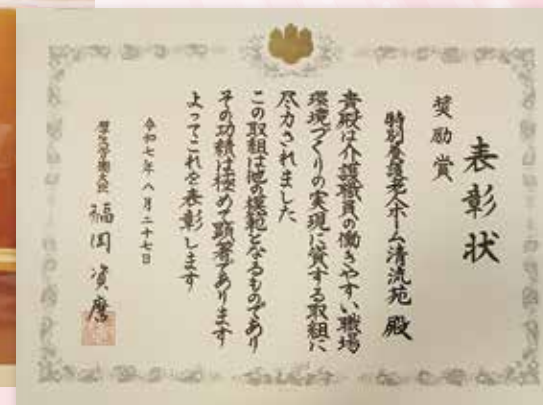 表彰状
奨励賞
特別養護老人ホーム清流苑 殿
貴殿は介護職員の働きやすい職場
環境づくりの実現に資する取組に
尽力されました
この取組は他の模範となるものであり
その功績は極めて顕著であります
よってこれを表彰します
令和七年八月二十七日
厚生労働大臣 福岡資麿